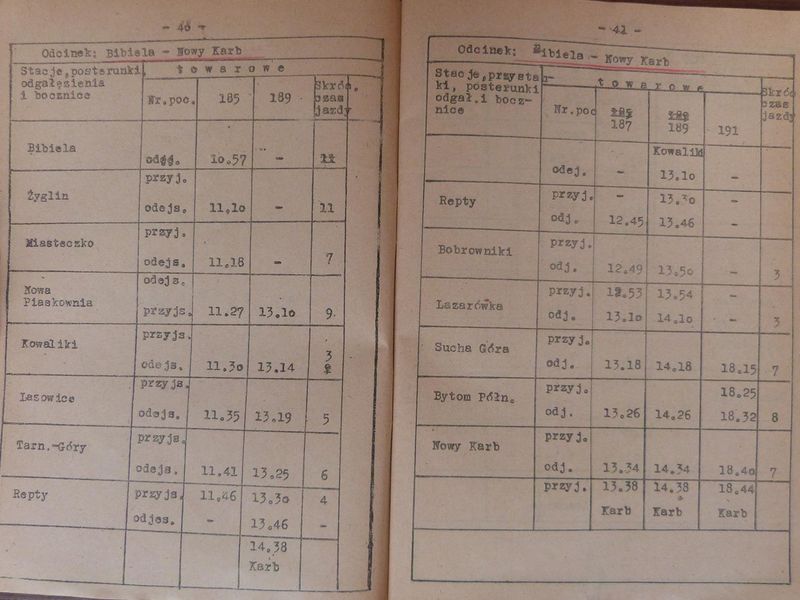 - 40 -
Odcinek: Bibiela - Nowy Karb
Stacje,posterunki, towarowe
odgałęzienia Skróc.
i bocznice Nr.poc. 185 189 czas
jazdy
Bibiela
10.57 - 11
przyj.
Żyglin
odejs. 11.10 - 11
przyj.
Miasteczko
odejs. 11.18 - 7
odejs.
Nowa
Piaskownia przyjs. 11.27 13.10 9
przyjs.
Kowaliki 3
odejs. 11.30 13.14
przyjs.
Lasowice
odejs. 11.35 13.19 5
przyjs.
Tarn.-Góry
odejs. 11.41 13.25 6
Repty przyjs. 11.46 13.30 4
odjes. - 13.46 -
14.38
Karb
- 41 -
Odcinek: Bibiela - Nowy Karb
Stacje,przysta- towarowe
ki, posterunki Skróc
odgał.i bocz- Nr.poc 185 189 czas
nice 187 189 191 jazdy
Kowaliki
odej. - 13.10 -
Repty przyj. - 13.30 -
odj. 12.45 13.46 -
Bobrowniki przyj.
odj. 12.49 13.50 - 3
Lazarówka przyj. 12.53 13.54
odj. 13.10 14.10 - 3
Sucha Góra przyj.
odj. 13.18 14.18 18.15 7
Bytom Półn. przyj. 18.25
odj. 13.26 14.26 18.32 8
Nowy Karb przyj.
odj. 13.34 14.34 18.40 7
przyj. 13.38 14.38 18.44
Karb Karb Karb